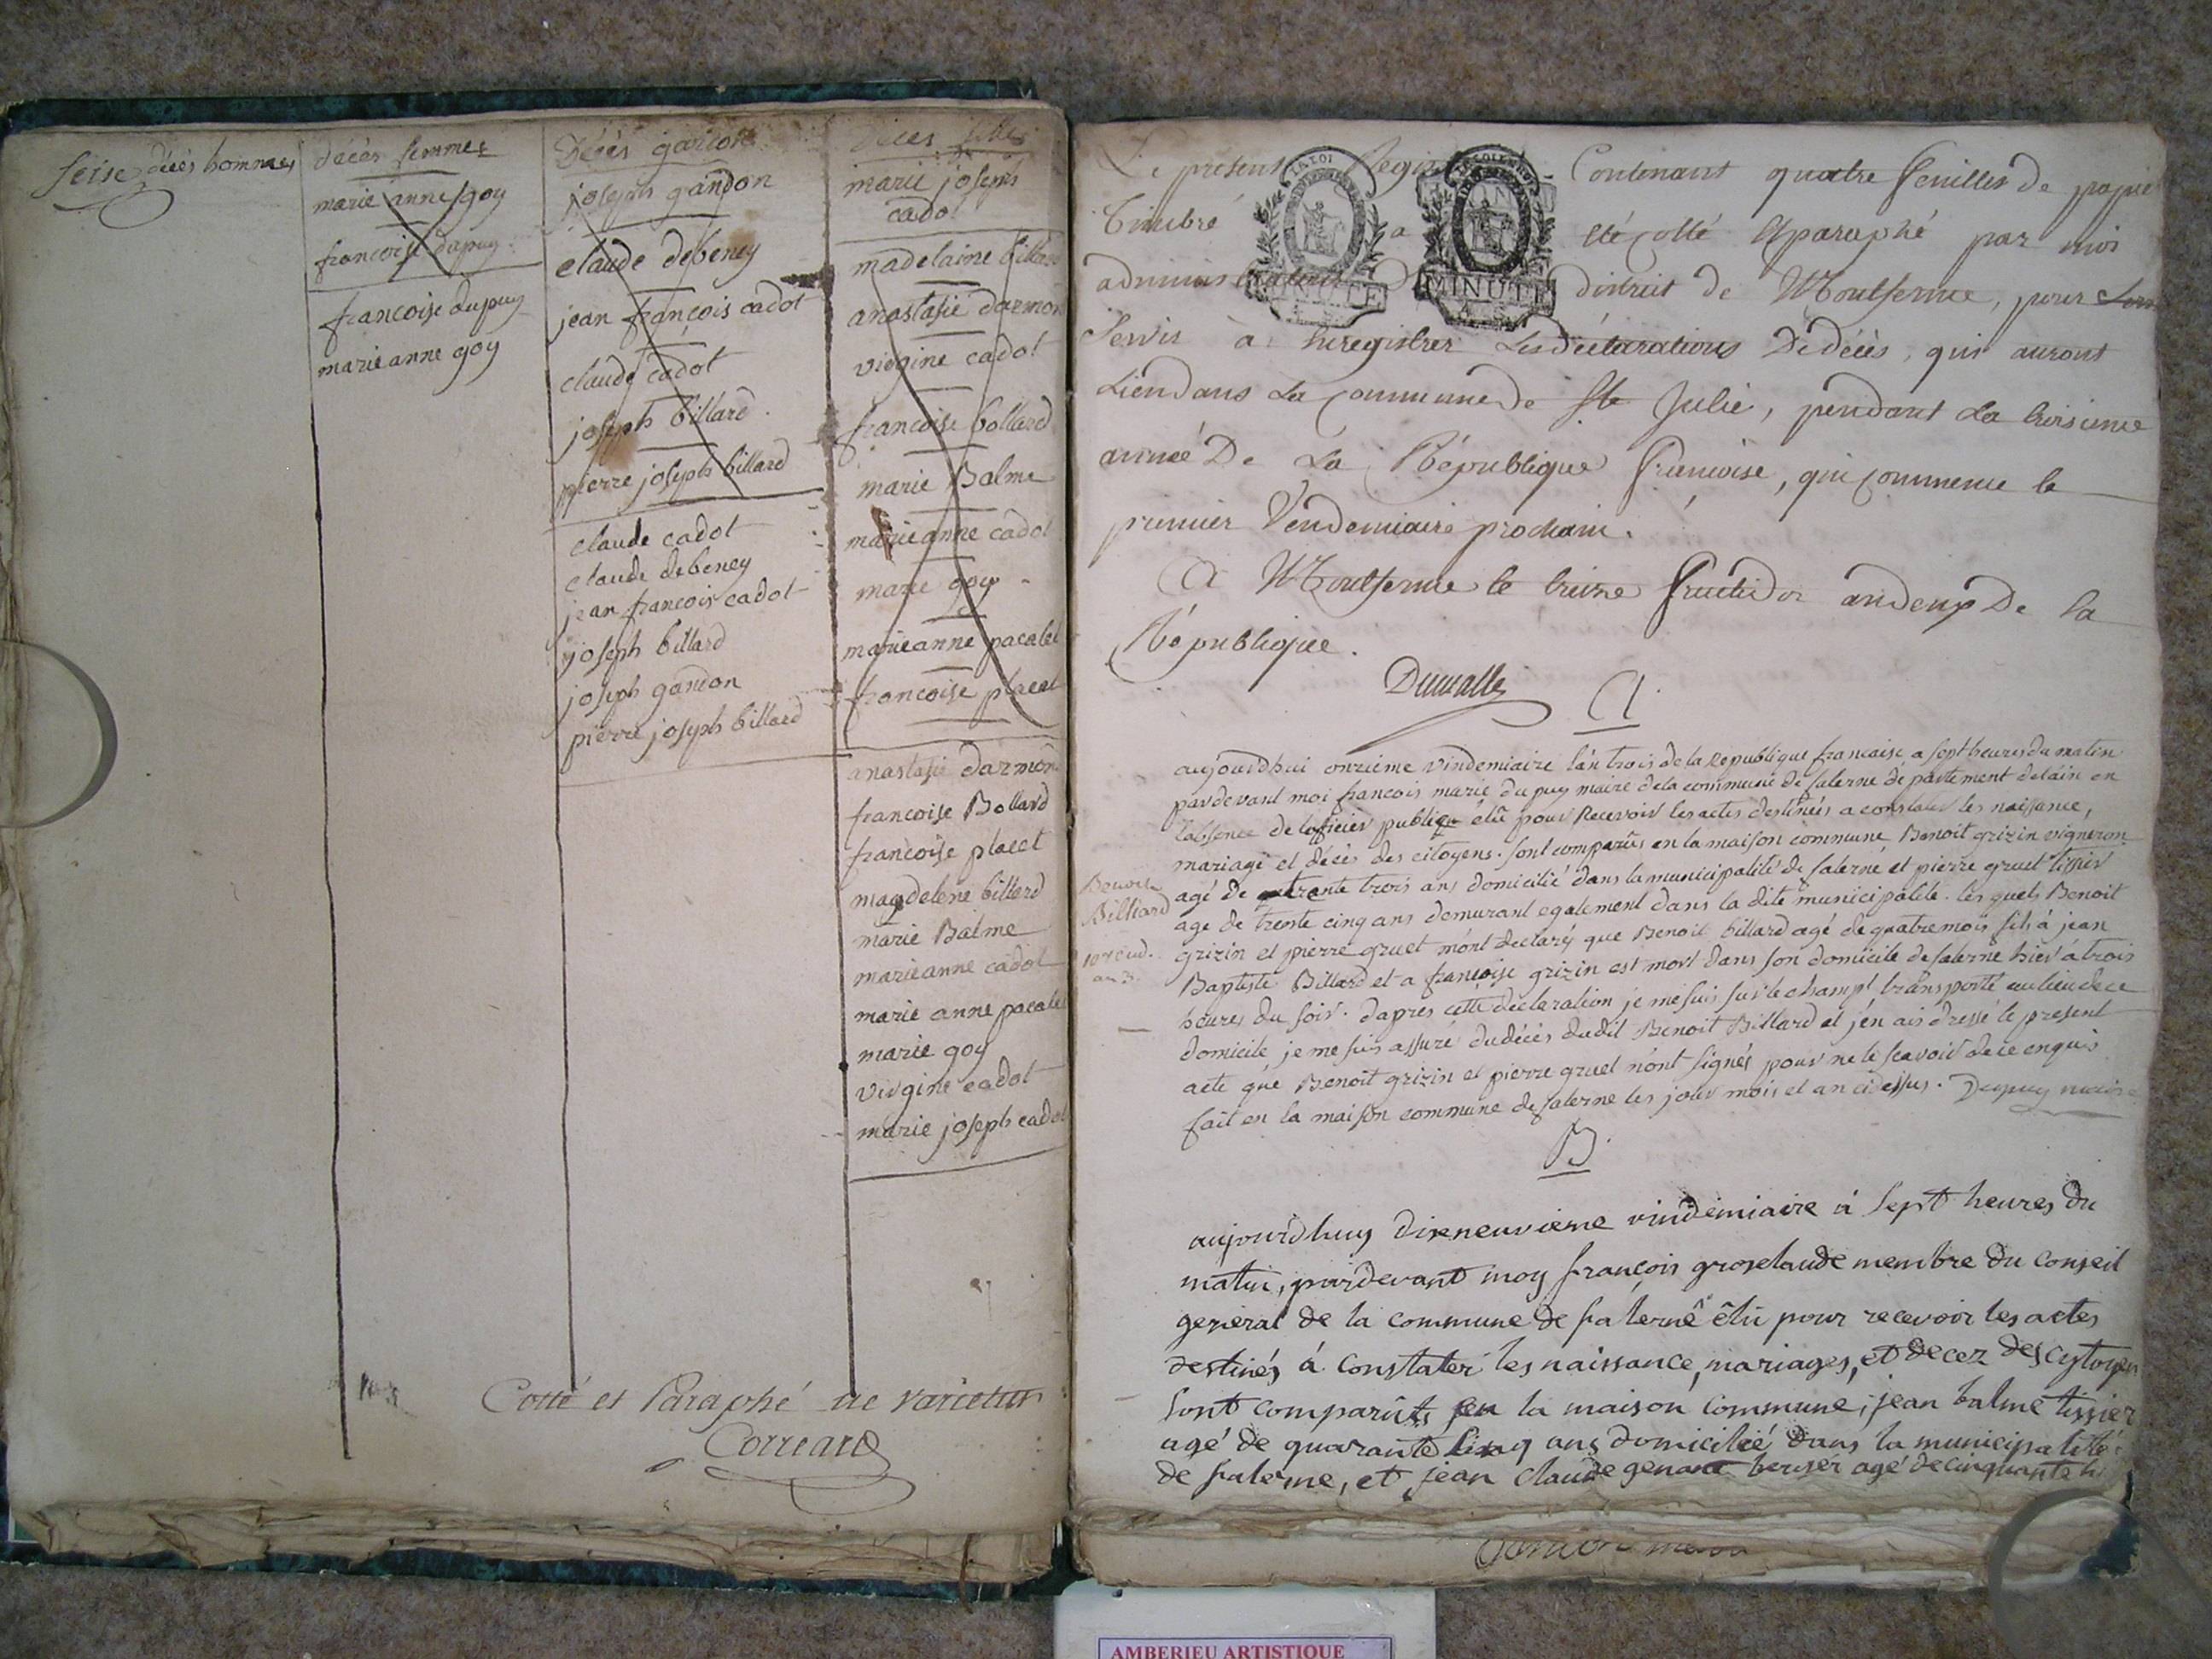 seise décès hommes
décès femmes
marie anne goy
francoise dupuy
francoise dupuy
marie anne goy
Décès garcons
joseph gandon
claude debeney
jean françois cadot
claude cadot
joseph billard
pierre joseph billard
claude cadot
claude debeney
jean francois cadot
joseph billard
joseph gandon
pierre joseph billard
Décès filles
marie joseph
cadot
madelaine billard
anastasie darmon
virgine cadot
francoise bollard
marie Balme
marieanne cadot
marie goy
marieanne pacalet
francoise placet
anastasie darmon
francoise Bollard
francoise placet
magdelene billerd
marie Balme
marieanne cadot
marie anne pacalet
marie goy
virgine cadot
marie joseph cadot
Cotté et Paraphé ne varietur
Correard
Le présent Regis Contenant quatre feuilles de papie
timbré a été cotté & paraphé par moi
administrateur D district de Montferme, pour
servir à enregistrer les déclarations De décès, qui auront
Lieu dans La Commune de Ste Julie, pendant La troisieme
année De La République francoise, qui commence le
premier Vendemiaire prochain.
A Montferme le treize fructidor an deux De la
République.
LA LOI
MINUTE
MINUTE
A
aujourdhui onzieme vindemiaire lan trois de la Republique francaise a sept heures du matin
pardevant moi francois marie dupuy maire dela commune de salerne departement delain en
labsence de lofficier publique elû pour Recevoir les actes destinés a constater les naissance,
mariage et décès des citoyens. sont comparûs en la maison commune, Benoit grizin vigneron
agé de trente trois ans domicilié dans la municipalité de salerne et pierre gruet tissier
age de trente cinq ans demurant egalement dans la dite municipalité. les quels Benoit
grizin et pierre gruet mont declaré que Benoit billard agé de quatre mois fils à jean
Baptiste Billard et a francoise grizin est mort dans son domicile de salerne hier à trois
heures du soir. dapres cette decleration je me suis sur le champt transporté au lieu de ce
domicile je me suis assuré du décès dudit Benoit Billard et jén ais dressé le present
acte que Benoit grizin et pierre gruet nont signés pour ne le scavoir de ce enquis
fait en la maison commune de salerne les jour mois et an ci dessus. Dupuy maire
Benoit
Billiard
10 vend.
an 3.
B
aujourdhuy dixneuvieme vindémiaire à sept heures du
matin, pardevant moy françois groselaude membre du conseil
general de la commune de salerne êlû pour recevoir les actes
destinés à constater les naissance, mariages, et decez des cytoyen
sont comparûts en la maison commune, jean balme tissier
agé de quarante cinq ans domicilié dans la municipalité
de salerne, et jean claude berger agé de cinquante
AMBERIEU ARTISTIQUE